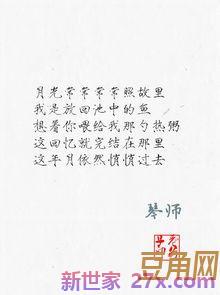 月光常常常常照故里
我是放回池中的鱼
想着你喂给我那勺热粥
这回忆就完结在那里
这年月依然悄悄过去
琴师
豆角网
新世家 27x.com